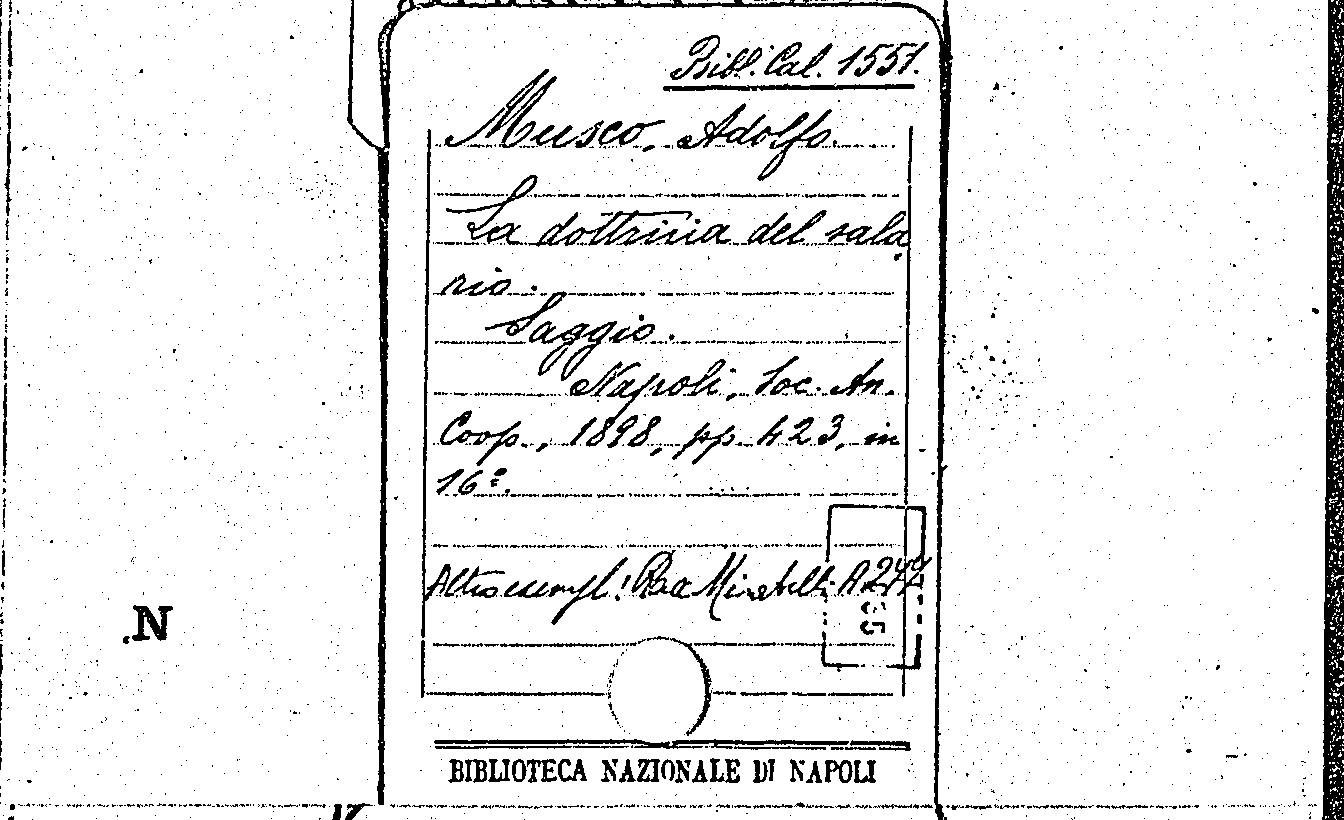 Bibl. Cal. 1551.
Musco, Adolfo.
La dottrina del sala
rio.
Saggio.
Napoli, Soc. An.
Coop., 1898, pp. 423, in
16º.
Altro esempl: Racc Miratelli A 242
35
N.
BIBLIOTECA NAZIONALE DI NAPOLI